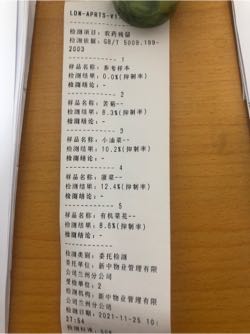 LDN-APRTS-V1
检测项目：农药残留
检测依据：GB/T 5009.199-
2003
1
样品名称：参考样本
检测结果：0.0%(抑制率)
检测结论：-
2
样品名称：苦菊--
检测结果：8.3%(抑制率)
检测结论：-
3
样品名称：小油菜--
检测结果：10.2%(抑制率)
检测结论：-
4
样品名称：菠菜--
检测结果：12.4%(抑制率)
检测结论：-
5
样品名称：有机菜花--
检测结果：8.6%(抑制率)
检测结论：-
检测类别：委托检测
委托单位：新中物业管理有限
公司兰州分公司
受检单位：2
检测机构：新中物业管理有限公
司兰州分公司
检测日期：2021-11-25 10